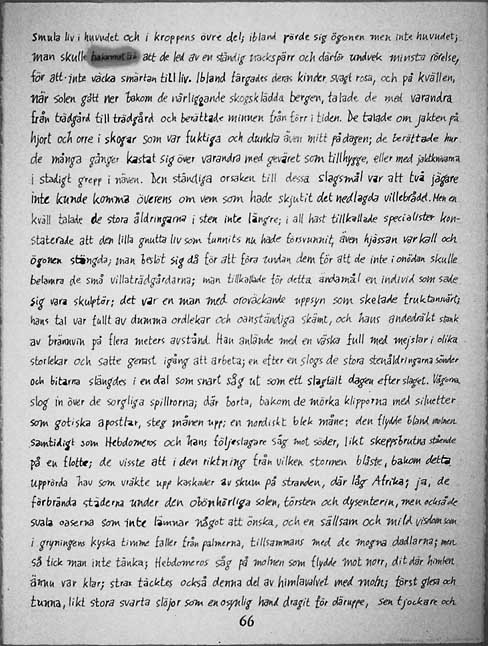 Smula liv i huvudet och i kroppens övre del; ibland rörde sig ögonen men inte huvudet;
man skulle att de led av en ständig nackspärr och därför undvek minsta rörelse,
för att inte väcka smärtan till liv. Ibland färgades deras kinder svagt rosa, och på kvällen,
när solen gått ner bakom de närliggande skogsklädda bergen, talade de med varandra
från trädgård till trädgård och berättade minnen från förr i tiden. De talade om jakten på
hjort och orre i skogar som var fuktiga och dunkla även mitt på dagen; de berättade hur
de många gånger kastat sig över varandra med geväret som tillhygge, eller med jaktknivarna
i stadigt grepp i näven. Den ständiga orsaken till dessa slagsmål var att två jägare
inte kunde komma överens om vem som hade skjutit det nedlagda villebrådet. Men en
kväll talade de stora åldringarna i sten inte längre; i all hast tillkallade specialister kon-
staterade att den lilla gnutta liv som funnits nu hade försvunnit, även hjässan var kall och
ögonen stängda; man beslöt sig då för att föra undan dem för att de inte i onödan skulle
belamra de små villaträdgårdarna; man tillkallade för detta ändamål en individ som sade
sig vara skulptör; det var en man med oroväckande uppsyn som skelade fruktansvärt;
hans tal var fullt av dumma ordlekar och oanständiga skämt, och hans andedräkt stank
av brännvin på flera meters avstånd. Han anlände med en väska full med mejslar i olika
storlekar och satte genast igång att arbeta; en efter en slogs de stora stenåldringarna sönder
och bitarna slängdes i en dal som snart såg ut som ett slagfält dagen efter slaget. Vågorna
slog in över de sorgliga spillrorna; där borta, bakom de mörka klipporna med siluetter
som gotiska apostlar, steg månen upp; en nordiskt blek måne; den flydde bland molnen
samtidigt som Hebdomeros och hans följeslagare såg mot söder, likt skeppsbrutna stående
på en flotte; de visste att i den riktning från vilken stormen blåste, bakom detta
upprörda hav som vräkte upp kaskader av skum på stranden, där låg Afrika; ja, de
förbrända städerna under den obönhörliga solen, törsten och dysenterin, men också de
svala oaserna som inte lämnar något att önska, och en sällsam och mild visdom som
i gryningens kyska timme faller från palmerna, tillsammans med de mogna dadlarna; men
så fick man inte tänka; Hebdomeros såg på molnen som flydde mot norr, dit där himlen
ännu var klar; strax täcktes också denna del av himlavalvet med moln; först glesa och
tunna, likt stora svarta slöjor som en osynlig hand dragit för däruppe, sen tjockare och
66